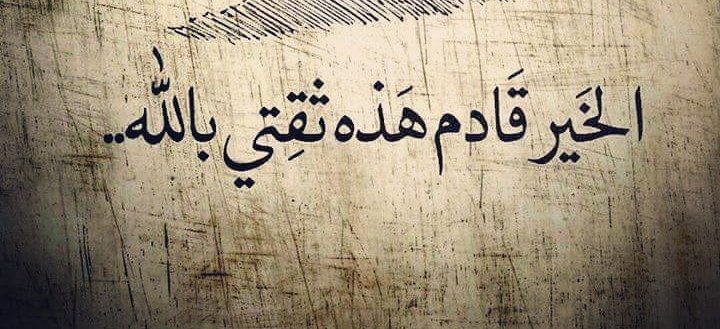 الخَير قَادم هَذه ثقِتي بالله..